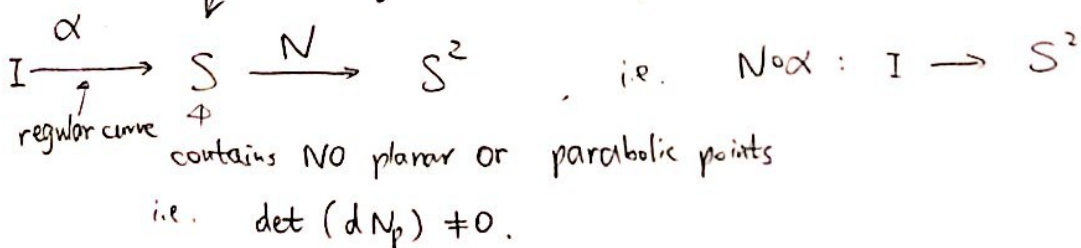 α
I ⟶ S —N→ S² , i.e. N∘α : I ⟶ S²
regular curve
contains NO planar or parabolic points
i.e. det (dNₚ) ≠ 0.